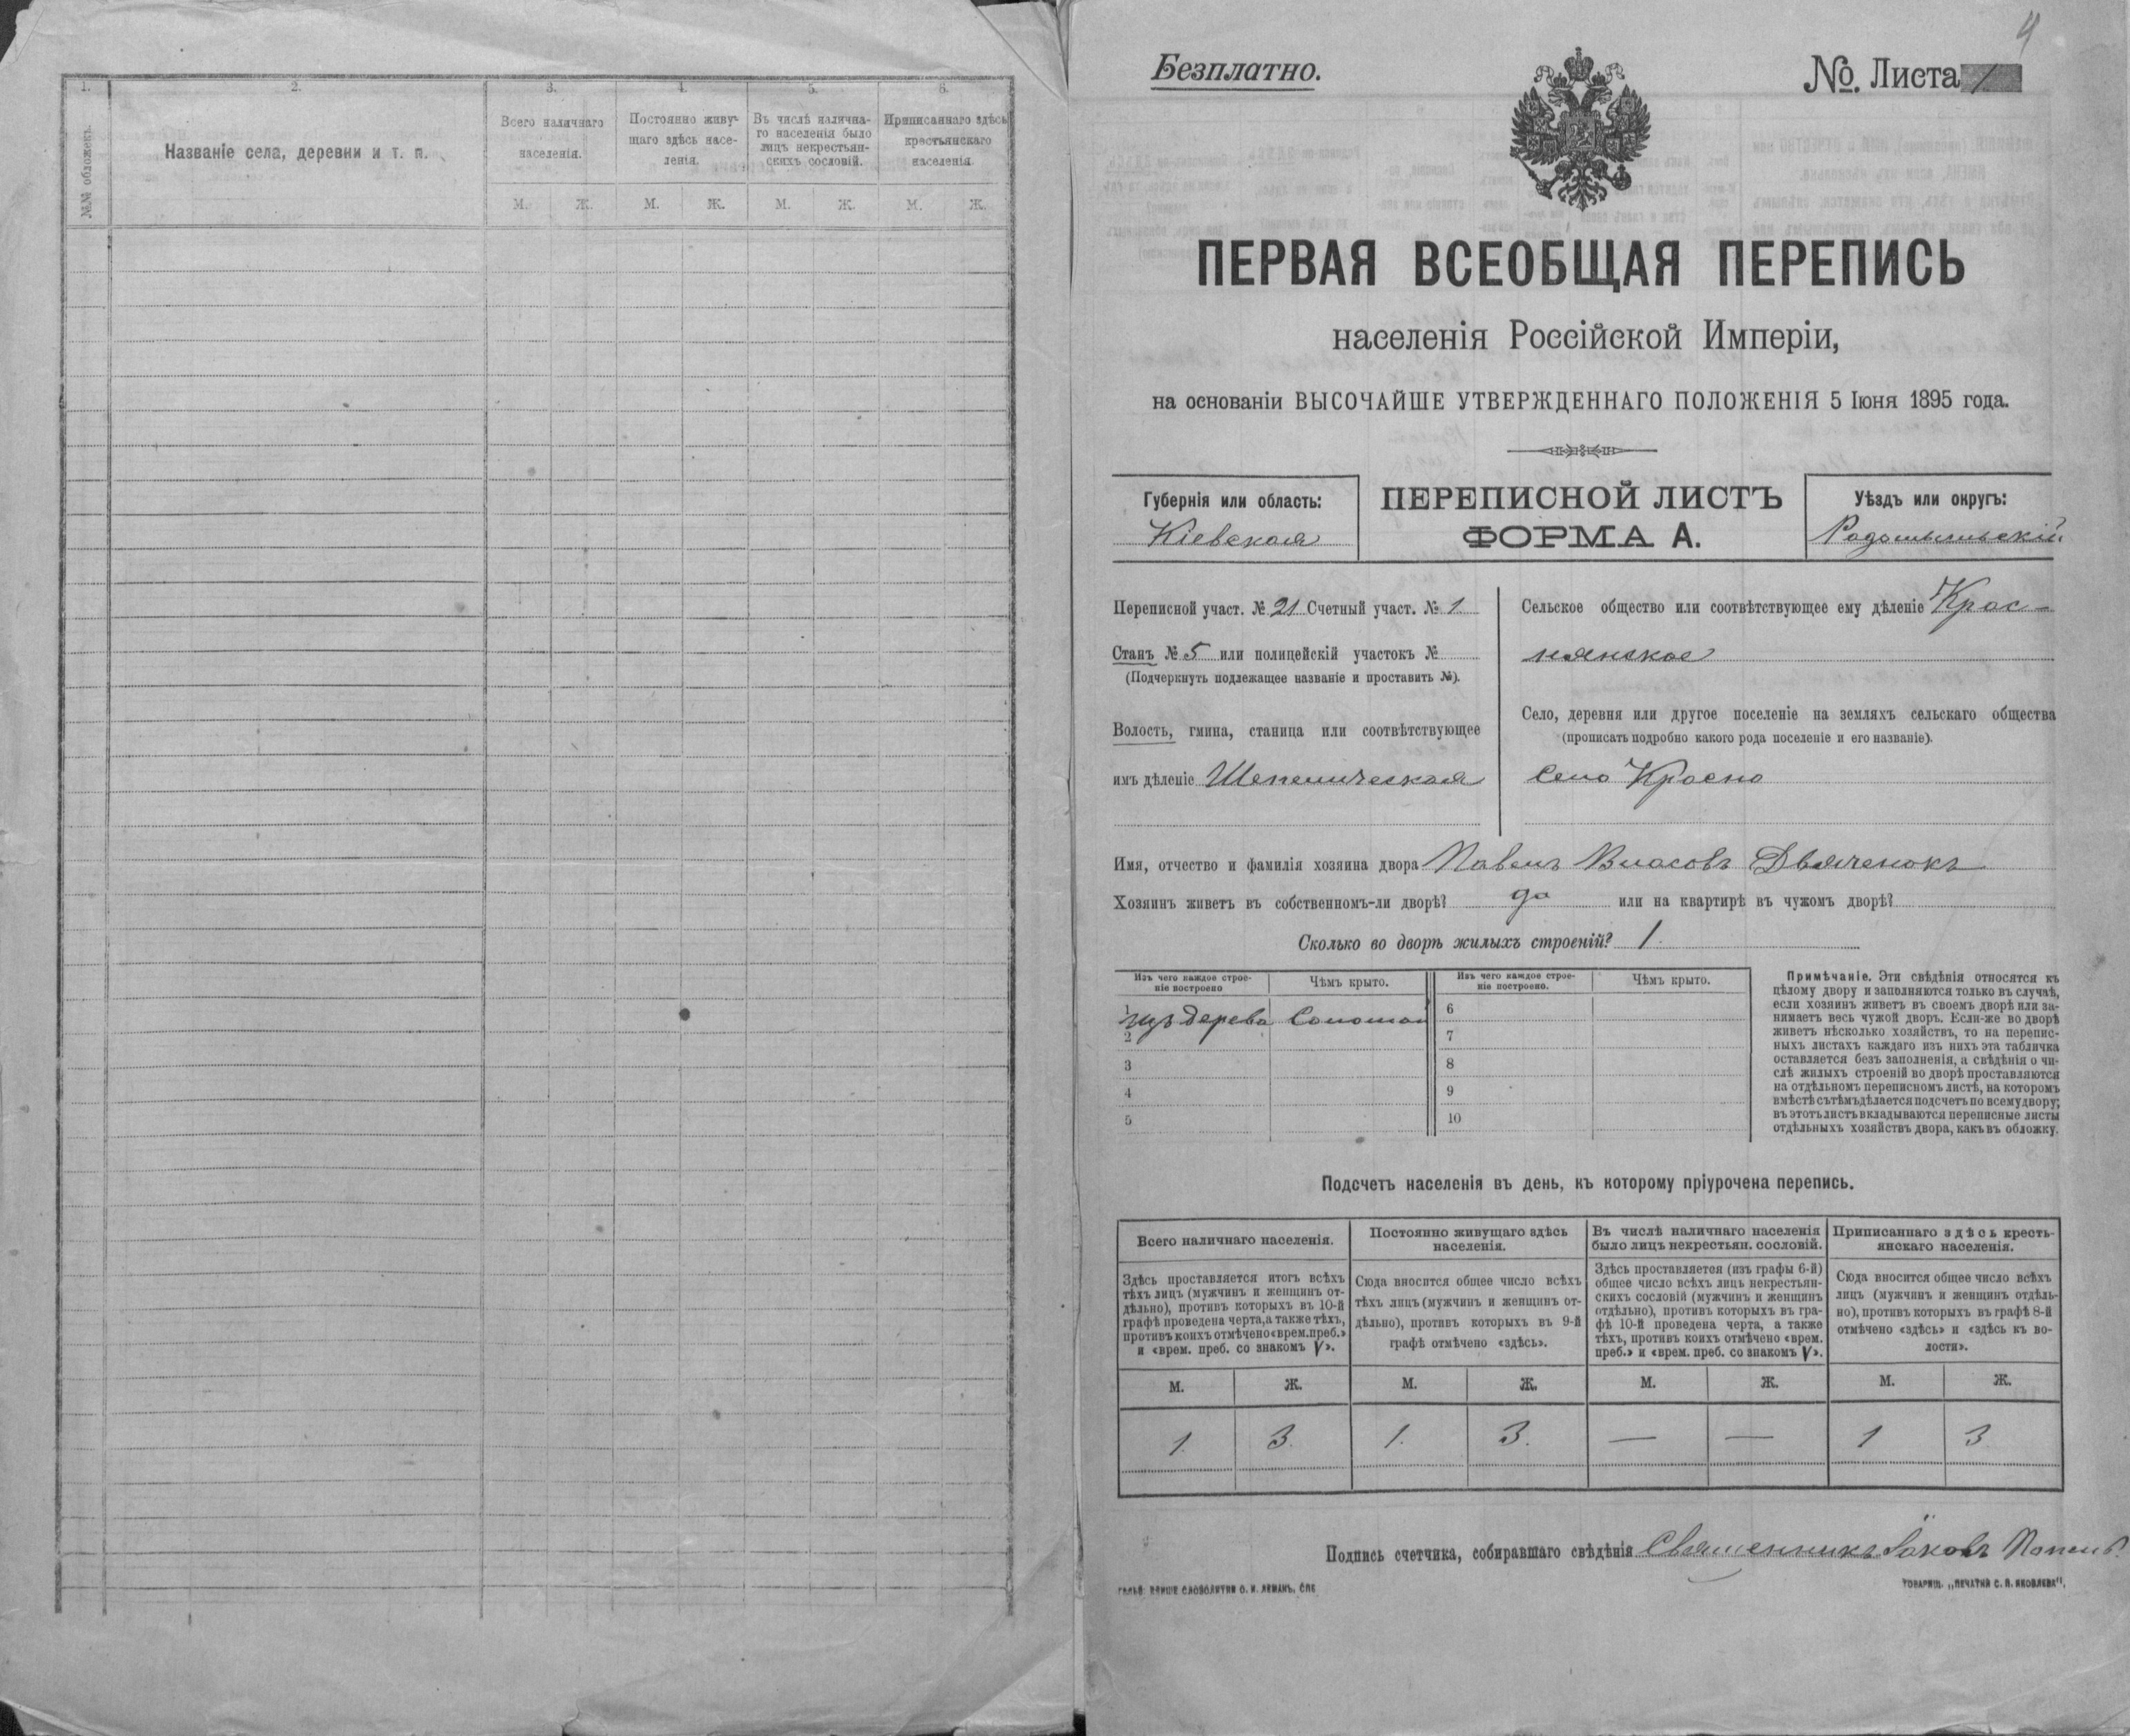 1. 2. 3. 4. 5. 6.
№№ обложекъ.
Названіе села, деревни и т. п.
Всего наличнаго
населенія.
Постоянно живу-
щаго здѣсь насе-
ленія.
Въ числѣ налична-
го населенія было
лицъ некрестьян-
скихъ сословій.
Приписаннаго здѣсь
крестьянскаго
населенія.
М. Ж. М. Ж. М. Ж. М. Ж.
4
Безплатно.
№. Листа 1
ПЕРВАЯ ВСЕОБЩАЯ ПЕРЕПИСЬ
населенія Россійской Имперіи,
на основаніи ВЫСОЧАЙШЕ УТВЕРЖДЕННАГО ПОЛОЖЕНІЯ 5 Іюня 1895 года.
Губернія или область:
Кіевская
ПЕРЕПИСНОЙ ЛИСТЪ
ФОРМА А.
Уѣздъ или округъ:
Радомысльскій
Переписной участ. № 21 Счетный участ. № 1
Станъ № 5 или полицейскій участокъ №
(Подчеркнуть подлежащее названіе и проставить №).
Волость, гмина, станица или соотвѣтствующее
имъ дѣленіе Шепелическая
Сельское общество или соотвѣтствующее ему дѣленіе Крас-
нянское
Село, деревня или другое поселеніе на земляхъ сельскаго общества
(прописать подробно какого рода поселеніе и его названіе).
Село Красно
Имя, отчество и фамилія хозяина двора Павелъ Власовъ Дьяченокъ
Хозяинъ живетъ въ собственномъ-ли дворѣ? да или на квартирѣ въ чужомъ дворѣ?
Сколько во дворѣ жилыхъ строеній? 1.
Изъ чего каждое строе-
ніе построено
Чѣмъ крыто.
Изъ чего каждое строе-
ніе построено.
Чѣмъ крыто.
1 изъ дерева Соломой 6
2 7
3 8
4 9
5 10
Примѣчаніе. Эти свѣдѣнія относятся къ
цѣлому двору и заполняются только въ случаѣ,
если хозяинъ живетъ въ своемъ дворѣ или за-
нимаетъ весь чужой дворъ. Если-же во дворѣ
живетъ нѣсколько хозяйствъ, то на перепис-
ныхъ листахъ каждаго изъ нихъ эта табличка
оставляется безъ заполненія, а свѣдѣнія о чи-
слѣ жилыхъ строеній во дворѣ проставляются
на отдѣльномъ переписномъ листѣ, на которомъ
вмѣстѣ съ тѣмъ дѣлается подсчетъ по всему двору;
въ этотъ листъ вкладываются переписные листы
отдѣльныхъ хозяйствъ двора, какъ въ обложку.
Подсчетъ населенія въ день, къ которому пріурочена перепись.
Всего наличнаго населенія.
Постоянно живущаго здѣсь
населенія.
Въ числѣ наличнаго населенія
было лицъ некрестьян. сословій.
Приписаннаго здѣсь кресть-
янскаго населенія.
Здѣсь проставляется итогъ всѣхъ
тѣхъ лицъ (мужчинъ и женщинъ от-
дѣльно), противъ которыхъ въ 10-й
графѣ проведена черта, а также тѣхъ,
противъ коихъ отмѣчено «врем. преб.»
и «врем. преб. со знакомъ V».
Сюда вносится общее число всѣхъ
тѣхъ лицъ (мужчинъ и женщинъ от-
дѣльно), противъ которыхъ въ 9-й
графѣ отмѣчено «здѣсь».
Здѣсь проставляется (изъ графы 6-й)
общее число всѣхъ лицъ некрестьян-
скихъ сословій (мужчинъ и женщинъ
отдѣльно), противъ которыхъ въ гра-
фѣ 10-й проведена черта, а также
тѣхъ, противъ коихъ отмѣчено «врем.
преб.» и «врем. преб. со знакомъ V».
Сюда вносится общее число всѣхъ
лицъ (мужчинъ и женщинъ отдѣль-
но), противъ которыхъ въ графѣ 8-й
отмѣчено «здѣсь» и «здѣсь къ во-
лости».
М. Ж. М. Ж. М. Ж. М. Ж.
1. 3. 1. 3. — — 1 3
Подпись счетчика, собиравшаго свѣдѣнія Священникъ Іаковъ
СЛОВОЛИТНИ О. И. ЛЕМАНЪ, СПБ
ТОВАРИЩ. „ПЕЧАТНЯ С. П. ЯКОВЛЕВА“.